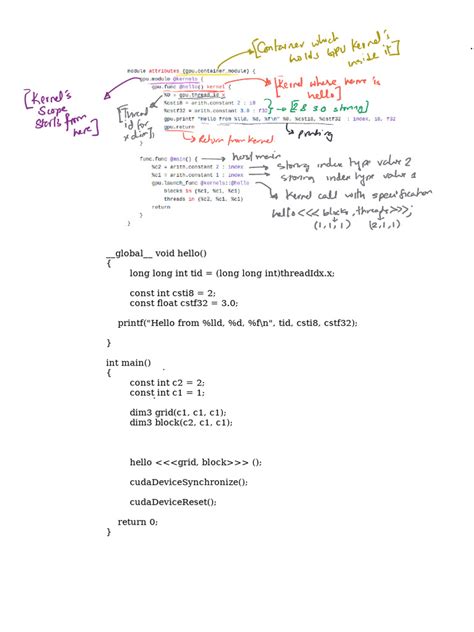 [Container which
holds GPU Kernel's
inside it]
module attributes {gpu.container_module} {
gpu.module @kernels {
gpu.func @hello() kernel {
%0 = gpu.thread_id x
%csti8 = arith.constant 2 : i8
%cstf32 = arith.constant 3.0 : f32
gpu.printf "Hello from %lld, %d, %f\n" %0, %csti8, %cstf32 : index, i8, f32
gpu.return
[Kernel's
Scope
Starts from
here]
[Thread
id for
x dim]
[Kernel where name is
hello]
3.0
printing
Return from kernel
func.func @main() {
%c2 = arith.constant 2 : index
%c1 = arith.constant 1 : index
gpu.launch_func @kernels::@hello
blocks in (%c1, %c1, %c1)
threads in (%c2, %c1, %c1)
return
}
}
host main
storing index type value 2
storing index type value 1
Kernel call with specification
hello<<<blocks, threads>>>;
(1,1,1) (2,1,1)
__global__ void hello()
{
long long int tid = (long long int)threadIdx.x;
const int csti8 = 2;
const float cstf32 = 3.0;
printf("Hello from %lld, %d, %f\n", tid, csti8, cstf32);
}
int main()
{
const int c2 = 2;
const int c1 = 1;
dim3 grid(c1, c1, c1);
dim3 block(c2, c1, c1);
hello <<<grid, block>>> ();
cudaDeviceSynchronize();
cudaDeviceReset();
return 0;
}